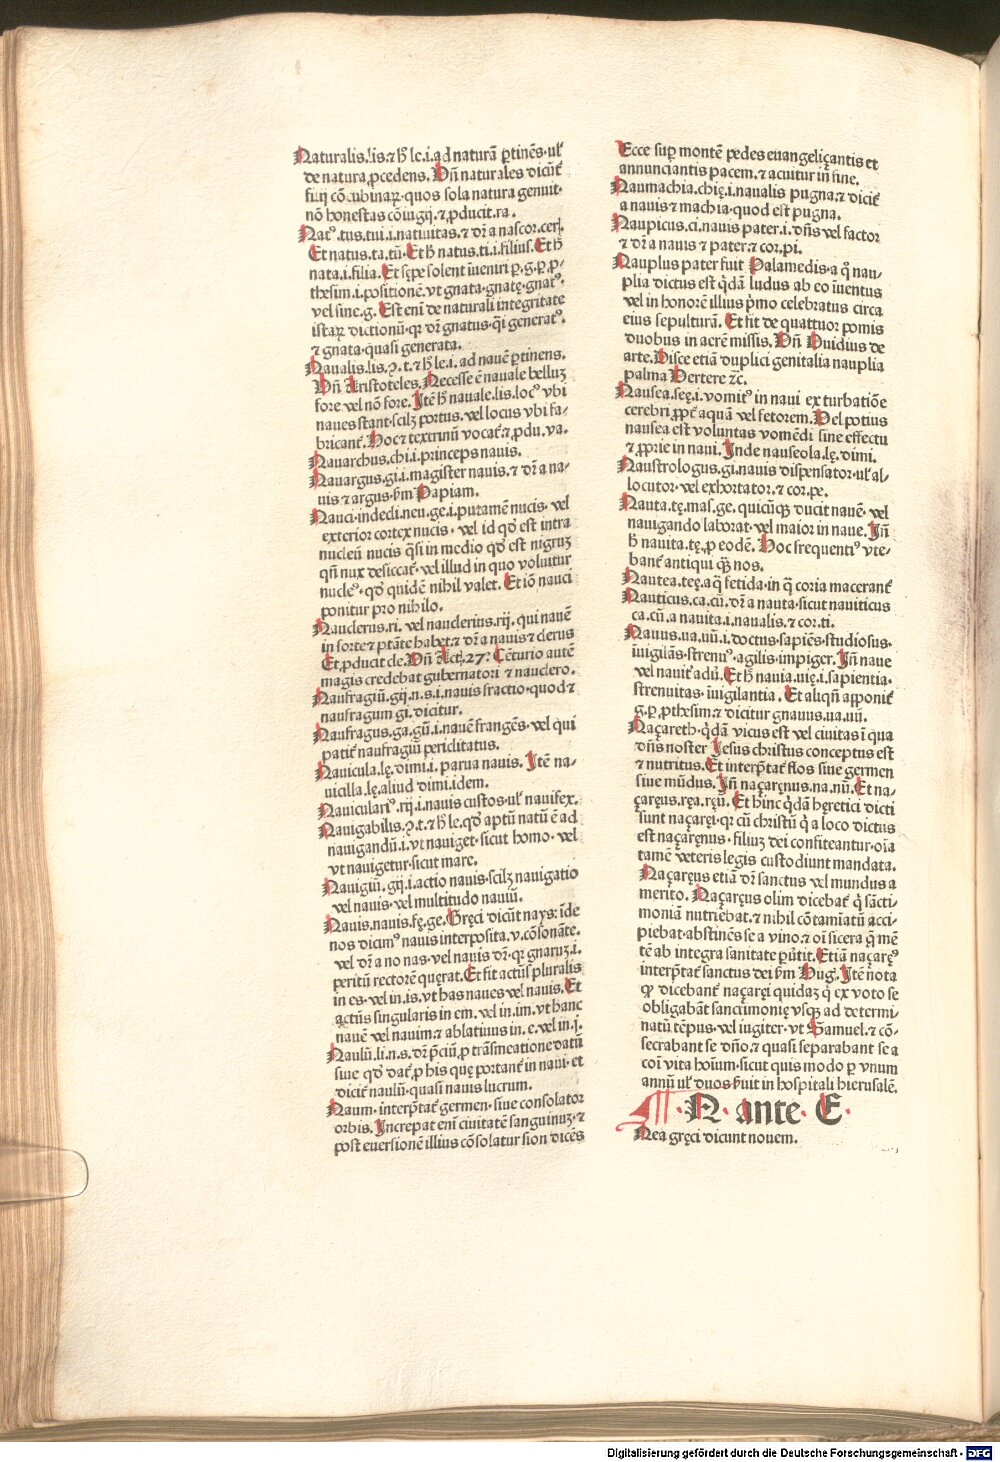 Naturalis.lis.⁊ hͦ le.i.ad naturā ꝑtinēs·ul'
de natura ꝓcedens. Vn̄ naturales dicūt᷑
filij cōcubinaꝝ·quos sola natura genuit·
nō honestas cōiugij.⁊ ꝓducit.ra.
Natꝰ.tus.tui.i.natiuitas.⁊ dr̄ a nascor.ceris.
Et natus.ta.tū.Et hͦ natus.ti.i.filius.Et hͨ
nata.i.filia.Et sępe solent īueniri ꝑ.g.ꝑ ꝓ-
thesim.i.positionē.vt gnata·gnatę·gnatꝰ·
vel sine.g. Est eni de naturali integritate
istaꝝ dictionū·qꝛ dr̄ gnatus·q̄si generatꝰ.
⁊ gnata·quasi generata.
Naualis.lis.ꝯ.t.⁊ hͦ le.i.ad nauē ꝑtinens.
Vn̄ Aristoteles.Necesse ē nauale belluꝫ
fore vel nō fore.Itē hͦ nauale.lis.locꝰ vbi
naues stant·scilꝫ portus.vel locus vbi fa-
bricant᷑.Hoc ⁊ textrinū vocat᷑.⁊ ꝓdu.va.
Nauarchus.chi.i.princeps nauis.
Nauargus.gi.i.magister nauis.⁊ dr̄ a na-
uis ⁊ argus·ẜm Papiam.
Nauci·indecli.neu.ge.i.putamē nucis·vel
exterior cortex nucis·vel id qd̓ est intra
nucleū nucis q̄si in medio qd̓ est nigruꝫ
qn̄ nux desiccat᷑·vel illud in quo voluitur
nucleꝰ·qd̓ quidē nihil valet. Et iō nauci
ponitur pro nihilo.
Nauclerus.ri.vel nauclerius.rij.qui nauē
in sorte ⁊ ptāte habet.⁊ dr̄ a nauis ⁊ clerus
Et ꝓducit cle.Vn̄ Act.27ͦ Cēturio autē
magis credebat gubernatori ⁊ nauclero.
Naufragiū.gij.n.s.i.nauis fractio·quod ⁊
naufragum gi.dicitur.
Naufragus.ga.gū.i.nauē frangēs·vel qui
patit᷑ naufragiū periclitatus.
Nauicula.lę.dimi.i.parua nauis. Itē na-
uicilla.lę.aliud dimi.idem.
Nauiculariꝰ.rij.i.nauis custos·ul' nauifex.
Nauigabilis.ꝯ.t.⁊ hͦ le.qd̓ aptū natū ē ad
nauigandū.i.vt nauiget·sicut homo·vel
vt nauigetur·sicut mare.
Nauigiū.gij.i.actio nauis·scilꝫ nauigatio
vel nauis·vel multitudo nauiū.
Nauis.nauis.fę.ge.Gręci dicūt nays: īde
nos dicimꝰ nauis interposita.v.cōsonāte.
vel dr̄ a no nas·vel nauis dr̄·qꝛ gnaruꝫ.i.
ꝑeritū rectorē quęrat.Et fit actūs pluralis
in es·vel in.is.vt has naues vel nauis. Et
actūs singularis in em.vel in.im.vt hanc
nauē vel nauim.⁊ ablatiuus in.e.vel in.i.
Naulū.li.n.s.dr̄ p̄ciū ꝓ trāsmeatione datū
siue qd̓ dat᷑ ꝓ his quę portant᷑ in naui·et
dicit᷑ naulū·quasi nauis lucrum.
Naum·interp̄tat᷑ germen·siue consolator
orbis.Increpat eni ciuitatē sanguinuꝫ·⁊
post euersionē illius cōsolatur sion dicēs
Ecce suꝑ montē pedes euangeliçantis et
annunciantis pacem.⁊ acuitur in̄ fine.
Naumachia.chię.i.naualis pugna.⁊ dicit᷑
a nauis ⁊ machia·quod est pugna.
Naupicus.ci.nauis pater.i.dn̄s vel factor
⁊ dr̄ a nauis ⁊ pater.⁊ cor.pi.
Nauplus pater fuit Palamedis·a qͦ nau-
plia dictus est qͥdā ludus ab eo īuentus
vel in honorē illius pͥmo celebratus circa
eius sepulturā. Et fit de quattuor pomis
duobus in acrē missis.Vn̄ Ouidius de
arte.Disce etiā duplici genitalia nauplia
palma Vertere ⁊c.
Nausea.seę.i.vomitꝰ in naui ex turbatiōe
cerebri ꝓpt᷑ aquā vel fetorem.Vel potius
nausea est voluntas vomēdi sine effectu
⁊ ꝓprie in naui.Inde nauseola.lę.dimi.
Naustrologus.gi.nauis dispensator·ul' al-
locutor·vel exhortator.⁊ cor.pe.
Nauta.tę.mas.ge.quicūqꝫ ducit nauē·vel
nauigando laborat·vel maior in naue.In̄
hͨ nauita.tę.ꝓ eodē. Hoc frequentiꝰ vte-
bant᷑ antiqui qꝫ nos.
Nautea.teę.aq̄ fetida·in q̄ coria macerant᷑
Nauticus.ca.cū.dr̄ a nauta·sicut nauiticus
ca.cū.a nauita.i.naualis.⁊ cor.ti.
Nauus.ua.uū.i.doctus·sapiēs·studiosus·
īuigilās·strenuꝰ·agilis·impiger.In̄ naue
vel nauit᷑ adū̓.Et hͨ nauia.uię.i.sapientia·
strenuitas·īuigilantia. Et aliqn̄ aꝓponit᷑
g.ꝑ ꝓthesim.⁊ dicitur gnauus.ua.uū.
Naçareth·qͥdā vicus est vel ciuitas ī qua
dn̄s noster Jesus christus conceptus est
⁊ nutritus.Et interp̄tat᷑ flos siue germen
siue mūdus.In̄ naçaręnus.na.nū.Et na-
çaręus.ręa.ręū. Et hinc qͥdā hęretici dicti
sunt naçaręi·qꝛ cū christū qͥ a loco dictus
est naçaręnus·filiuꝫ dei confiteantur·oīa
tamē veteris legis custodiunt mandata.
Naçaręus etiā dr̄ sanctus vel mundus a
merito. Naçaręus olim dicebat᷑ qͥ sācti-
moniā nutriebat.⁊ nihil cōtamiatū acci-
piebat·abstinēs se a vino.⁊ oī sicera q̄ mē
tē ab integra sanitate ꝑūtit.Etiā naçaręꝰ
interp̄tat᷑ sanctus dei ẜm Hug.Itē nota
ꝙ dicebant᷑ naçaręi quidaꝫ qͥ ex voto se
obligabāt sanctimonię vsqꝫ ad determi-
natū tēpus·vel iugiter·vt Samuel.⁊ cō-
secrabant se dn̄o.⁊ quasi separabant se a
coī vita hoīum·sicut quis modo ꝑ vnum
annū ul' duos ẜuit in hospitali hierusalē.
·N· ante· E·
Nea gręci dicunt nouem.
Digitalisierung gefördert durch die Deutsche Forschungsgemeinschaft - DFG